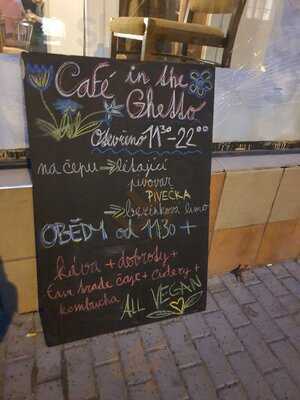 Café in the
Ghetto
Otevřeno 11³⁰ – 22⁰⁰
na čepu → létající
pivovar
PIVEČKA
→ bezinková limo
OBĚDY od 11³⁰ +
káva + dobroty +
Fair trade čaje + cidery +
kombucha ALL VEGAN